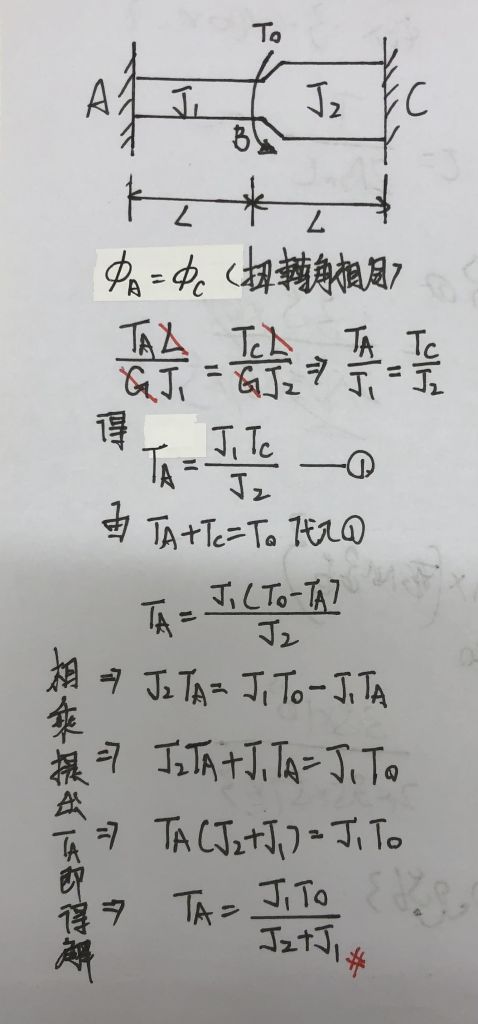 T0
A J1 J2 C
B
L L
ϕA = ϕC (扭轉角相同)
TA L / G J1 = TC L / G J2 ⇒ TA / J1 = TC / J2
得 TA = J1 TC / J2 —— ①
由 TA + TC = T0 代入①
TA = J1 (T0 - TA) / J2
⇒ J2 TA = J1 T0 - J1 TA
⇒ J2 TA + J1 TA = J1 T0
⇒ TA (J2 + J1) = J1 T0
⇒ TA = J1 T0 / J2 + J1 #
相乘提出TA即得解